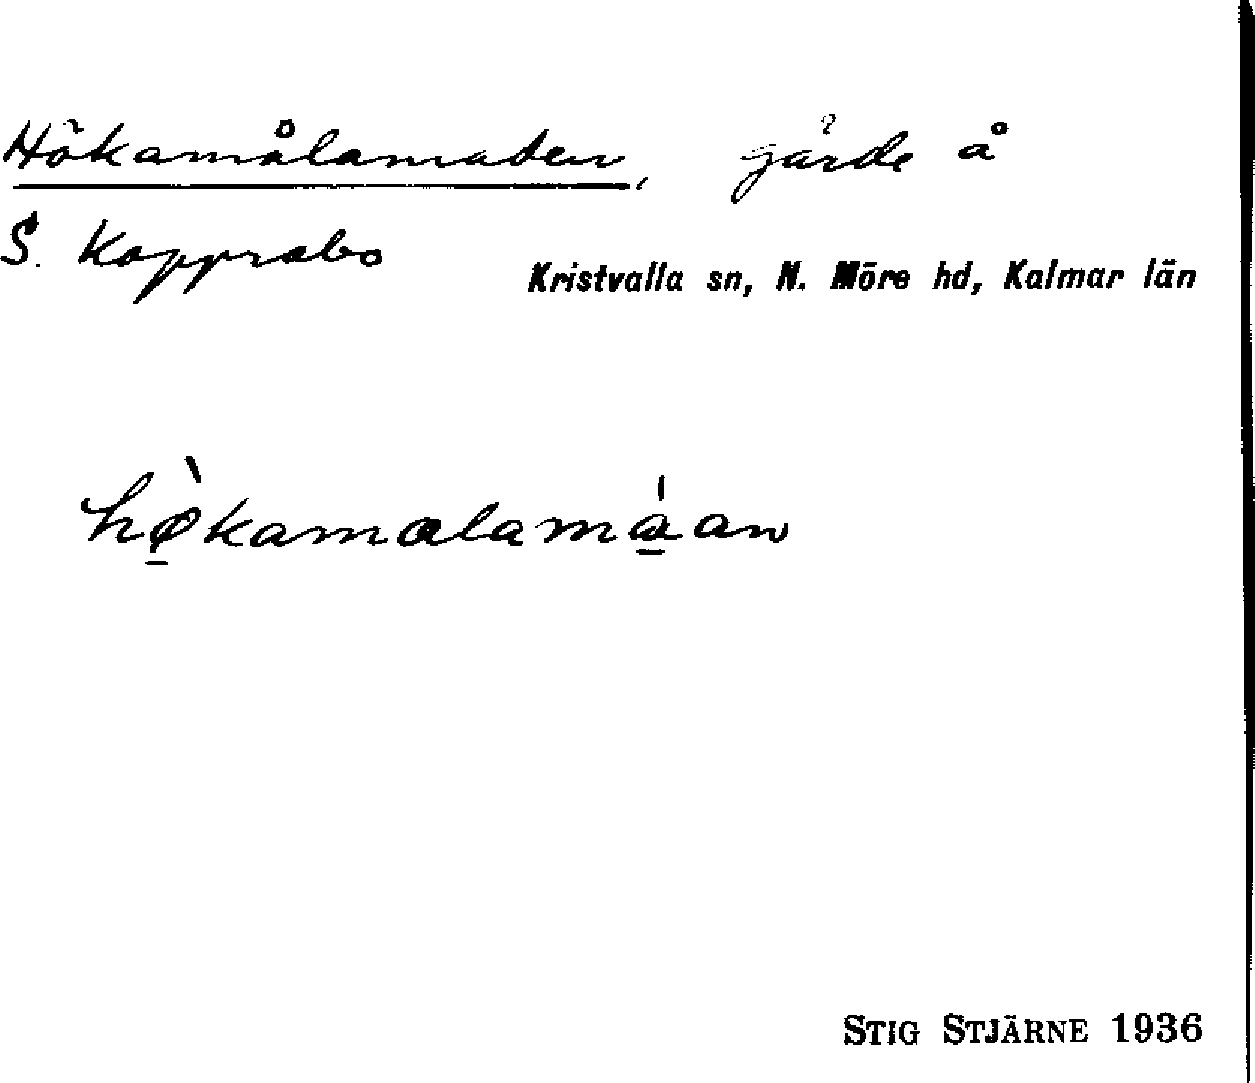 Hökamålamaden, gärde å
S. Kopprabo
Kristvalla sn, N. Möre hd, Kalmar län
hø̀kamalamáan
STIG STJÄRNE 1936